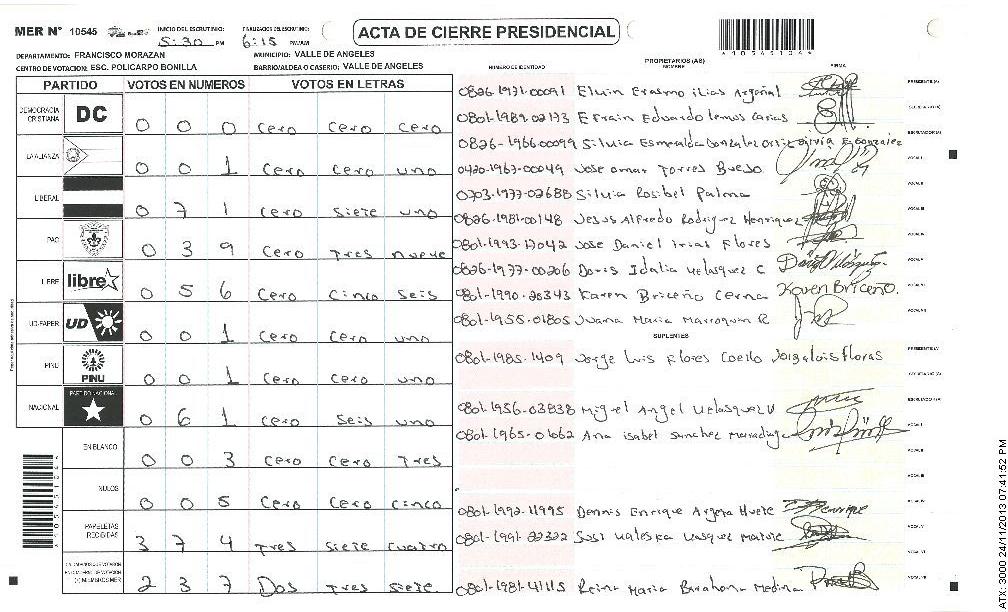 MER N° 10545 INICIO DEL ESCRUTINIO: 5:30 PM FINALIZACION DEL ESCRUTINIO: 6:15 PM/AM
ACTA DE CIERRE PRESIDENCIAL
DEPARTAMENTO: FRANCISCO MORAZAN MUNICIPIO: VALLE DE ANGELES
CENTRO DE VOTACION: ESC. POLICARPO BONILLA BARRIO/ALDEA O CASERIO: VALLE DE ANGELES
PARTIDO VOTOS EN NUMEROS VOTOS EN LETRAS
DEMOCRACIA CRISTIANA DC 0 0 0 cero cero cero
LA ALIANZA 0 0 1 cero cero uno
LIBERAL 0 7 1 cero siete uno
PAC 0 3 9 cero tres nueve
LIBRE libre 0 5 6 cero cinco seis
UD-FAPER UD 0 0 1 cero cero uno
PINU PINU 0 0 1 cero cero uno
NACIONAL PARTIDO NACIONAL 0 6 1 cero seis uno
EN BLANCO 0 0 3 cero cero tres
NULOS 0 0 5 cero cero cinco
PAPELETAS RECIBIDAS 3 7 4 tres siete cuatro
2 3 7 Dos tres siete
PROPRIETARIOS (AS)
NUMERO DE IDENTIDAD NOMBRE FIRMA
0826-1971-00091 Elvin Erasmo ilias Argeñal
0801-1989-02193 Efrain Eduardo lemos Carias
0826-1966-00099 Silvia Esmeralda Gonzales Ortiz Silvia E. Gonzalez
0420-1967-00049 Jose omar Torres Bueso
0703-1977-02688 Silvia Rosibel Palma
0826-1981-00148 Jesus Alfredo Rodriguez Henriquez
0801-1993-12042 Jose Daniel irias Flores
0826-1977-00206 Doris Idalia Velasquez C
0801-1990-20343 Karen Briceño Cerna Karen Briceño
0801-1955-01805 Juana Maria Marroquin R
SUPLENTES
0801-1985-1409 Jorge Luis Flores Coello Jorge luis floras
0801-1956-03838 Miguel Angel Velasquez V
0801-1965-01662 Ana isabel Sanchez
0801-1992-11995 Dennis Enrique
0801-1991-22322
0801-1981-41115 Reina Maria Barahona Medina
PRESIDENTE (A)
SECRETARIO (A)
ESCRUTADOR (A)
VOCAL I
VOCAL II
VOCAL III
VOCAL IV
VOCAL V
VOCAL VI
VOCAL VII
ATX 3000 24/11/2013 07:41:52 PM